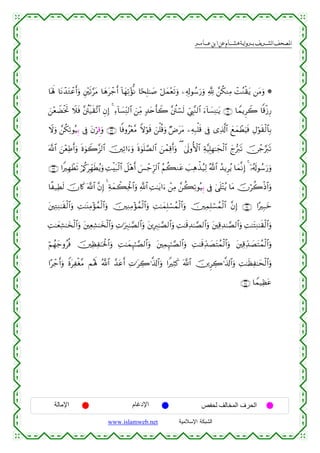 المصحف الشريف برواية هشام عن ابن عامر
* وَمَن يَقْنُتْ مِنكُنَّ لِلَّهِ وَرَسُولِهِۦ وَتَعْمَلْ صَٰلِحًا نُّؤْتِهَآ أَجْرَهَا مَرَّتَيْنِ وَأَعْتَدْنَا لَهَا
رِزْقًا كَرِيمًا ۝ يَٰنِسَآءَ ٱلنَّبِيِّ لَسْتُنَّ كَأَحَدٍ مِّنَ ٱلنِّسَآءِ ۚ إِنِ ٱتَّقَيْتُنَّ فَلَا تَخْضَعْنَ
بِٱلْقَوْلِ فَيَطْمَعَ ٱلَّذِى فِى قَلْبِهِۦ مَرَضٌ وَقُلْنَ قَوْلًا مَّعْرُوفًا ۝ وَقِرْنَ فِى بُيُوتِكُنَّ وَلَا
تَبَرَّجْنَ تَبَرُّجَ ٱلْجَٰهِلِيَّةِ ٱلْأُولَىٰ ۖ وَأَقِمْنَ ٱلصَّلَوٰةَ وَءَاتِينَ ٱلزَّكَوٰةَ وَأَطِعْنَ ٱللَّهَ
وَرَسُولَهُۥٓ ۚ إِنَّمَا يُرِيدُ ٱللَّهُ لِيُذْهِبَ عَنكُمُ ٱلرِّجْسَ أَهْلَ ٱلْبَيْتِ وَيُطَهِّرَكُمْ تَطْهِيرًا ۝
وَٱذْكُرْنَ مَا يُتْلَىٰ فِى بُيُوتِكُنَّ مِنْ ءَايَٰتِ ٱللَّهِ وَٱلْحِكْمَةِ ۚ إِنَّ ٱللَّهَ كَانَ لَطِيفًا
خَبِيرًا ۝ إِنَّ ٱلْمُسْلِمِينَ وَٱلْمُسْلِمَٰتِ وَٱلْمُؤْمِنِينَ وَٱلْمُؤْمِنَٰتِ وَٱلْقَٰنِتِينَ
وَٱلْقَٰنِتَٰتِ وَٱلصَّٰدِقِينَ وَٱلصَّٰدِقَٰتِ وَٱلصَّٰبِرِينَ وَٱلصَّٰبِرَٰتِ وَٱلْخَٰشِعِينَ وَٱلْخَٰشِعَٰتِ
وَٱلْمُتَصَدِّقِينَ وَٱلْمُتَصَدِّقَٰتِ وَٱلصَّٰٓئِمِينَ وَٱلصَّٰٓئِمَٰتِ وَٱلْحَٰفِظِينَ فُرُوجَهُمْ
وَٱلْحَٰفِظَٰتِ وَٱلذَّٰكِرِينَ ٱللَّهَ كَثِيرًا وَٱلذَّٰكِرَٰتِ أَعَدَّ ٱللَّهُ لَهُم مَّغْفِرَةً وَأَجْرًا
عَظِيمًا ۝
الحرف المخالف لحفص الإدغام الإمالة
الشبكة الإسلامية www.islamweb.net